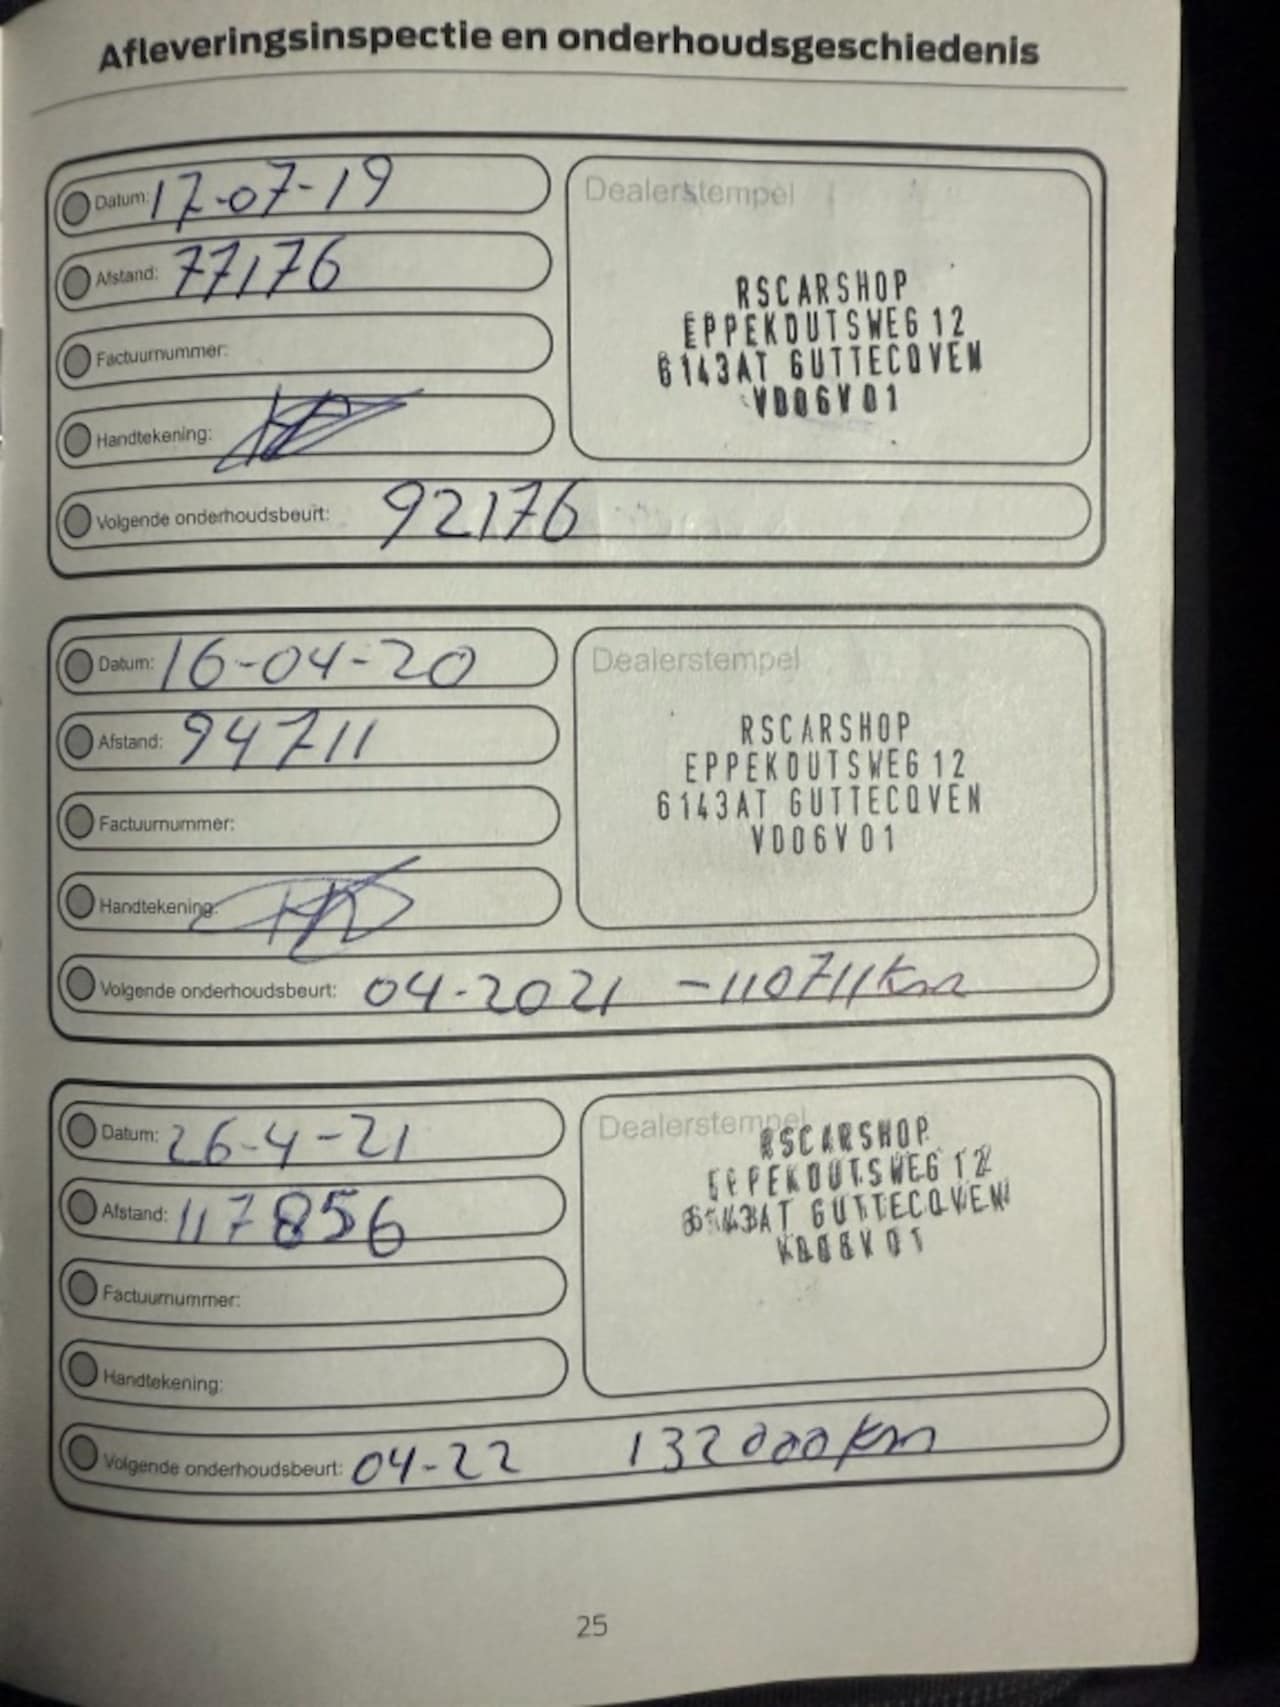 Afleveringsinspectie en onderhoudsgeschiedenis
Datum: 17-07-19
Afstand: 77176
Factuurnummer:
Handtekening:
Volgende onderhoudsbeurt: 92176
Dealerstempel
RSCARSHOP
EPPEKOUTSWEG 12
6143AT GUTTECOVEN
VD06V01
Datum: 16-04-20
Afstand: 94711
Factuurnummer:
Handtekening:
Volgende onderhoudsbeurt: 04-2021 - 110711km
Dealerstempel
RSCARSHOP
EPPEKOUTSWEG 12
6143AT GUTTECOVEN
VD06V01
Datum: 26-4-21
Afstand: 117856
Factuurnummer:
Handtekening:
Volgende onderhoudsbeurt: 04-22 132000km
Dealerstempel
RSCARSHOP
EPPEKOUTSWEG 12
6143AT GUTTECOVEN
25